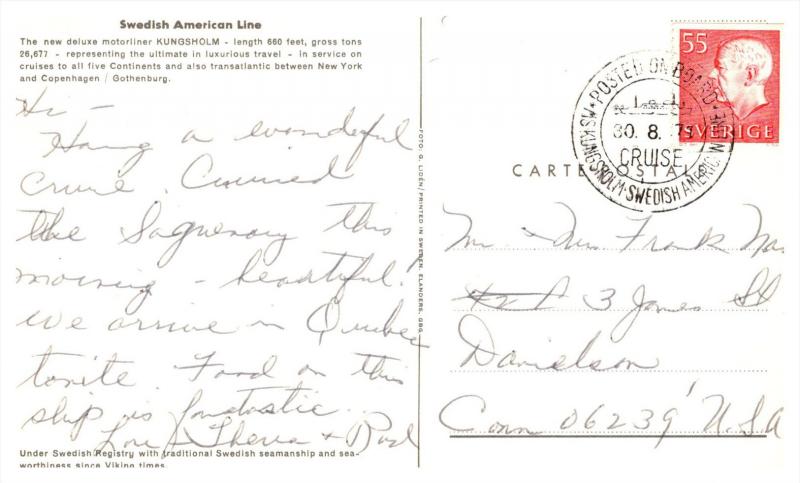 Swedish American Line
The new deluxe motorliner KUNGSHOLM - length 660 feet, gross tons
26,677 - representing the ultimate in luxurious travel - in service on
cruises to all five Continents and also transatlantic between New York
and Copenhagen / Gothenburg.
Hi -
Having a wonderful
cruise. Cruised
the Saguenay this
morning - beautiful!
We arrive in Quebec
tonite. Food on this
ship is fantastic.
Love
Under Swedish Registry with traditional Swedish seamanship and sea-
worthiness since Viking times.
FOTO: G. LIDÉN/PRINTED IN SWEDEN. ELANDERS, GBG.
55
SVERIGE
POSTED ON BOARD
30. 8.
CRUISE
MS KUNGSHOLM·SWEDISH AMERICAN LINE
CARTE POSTALE
Mr & Mrs Frank
3 James St
Danielson
Conn 06239 USA